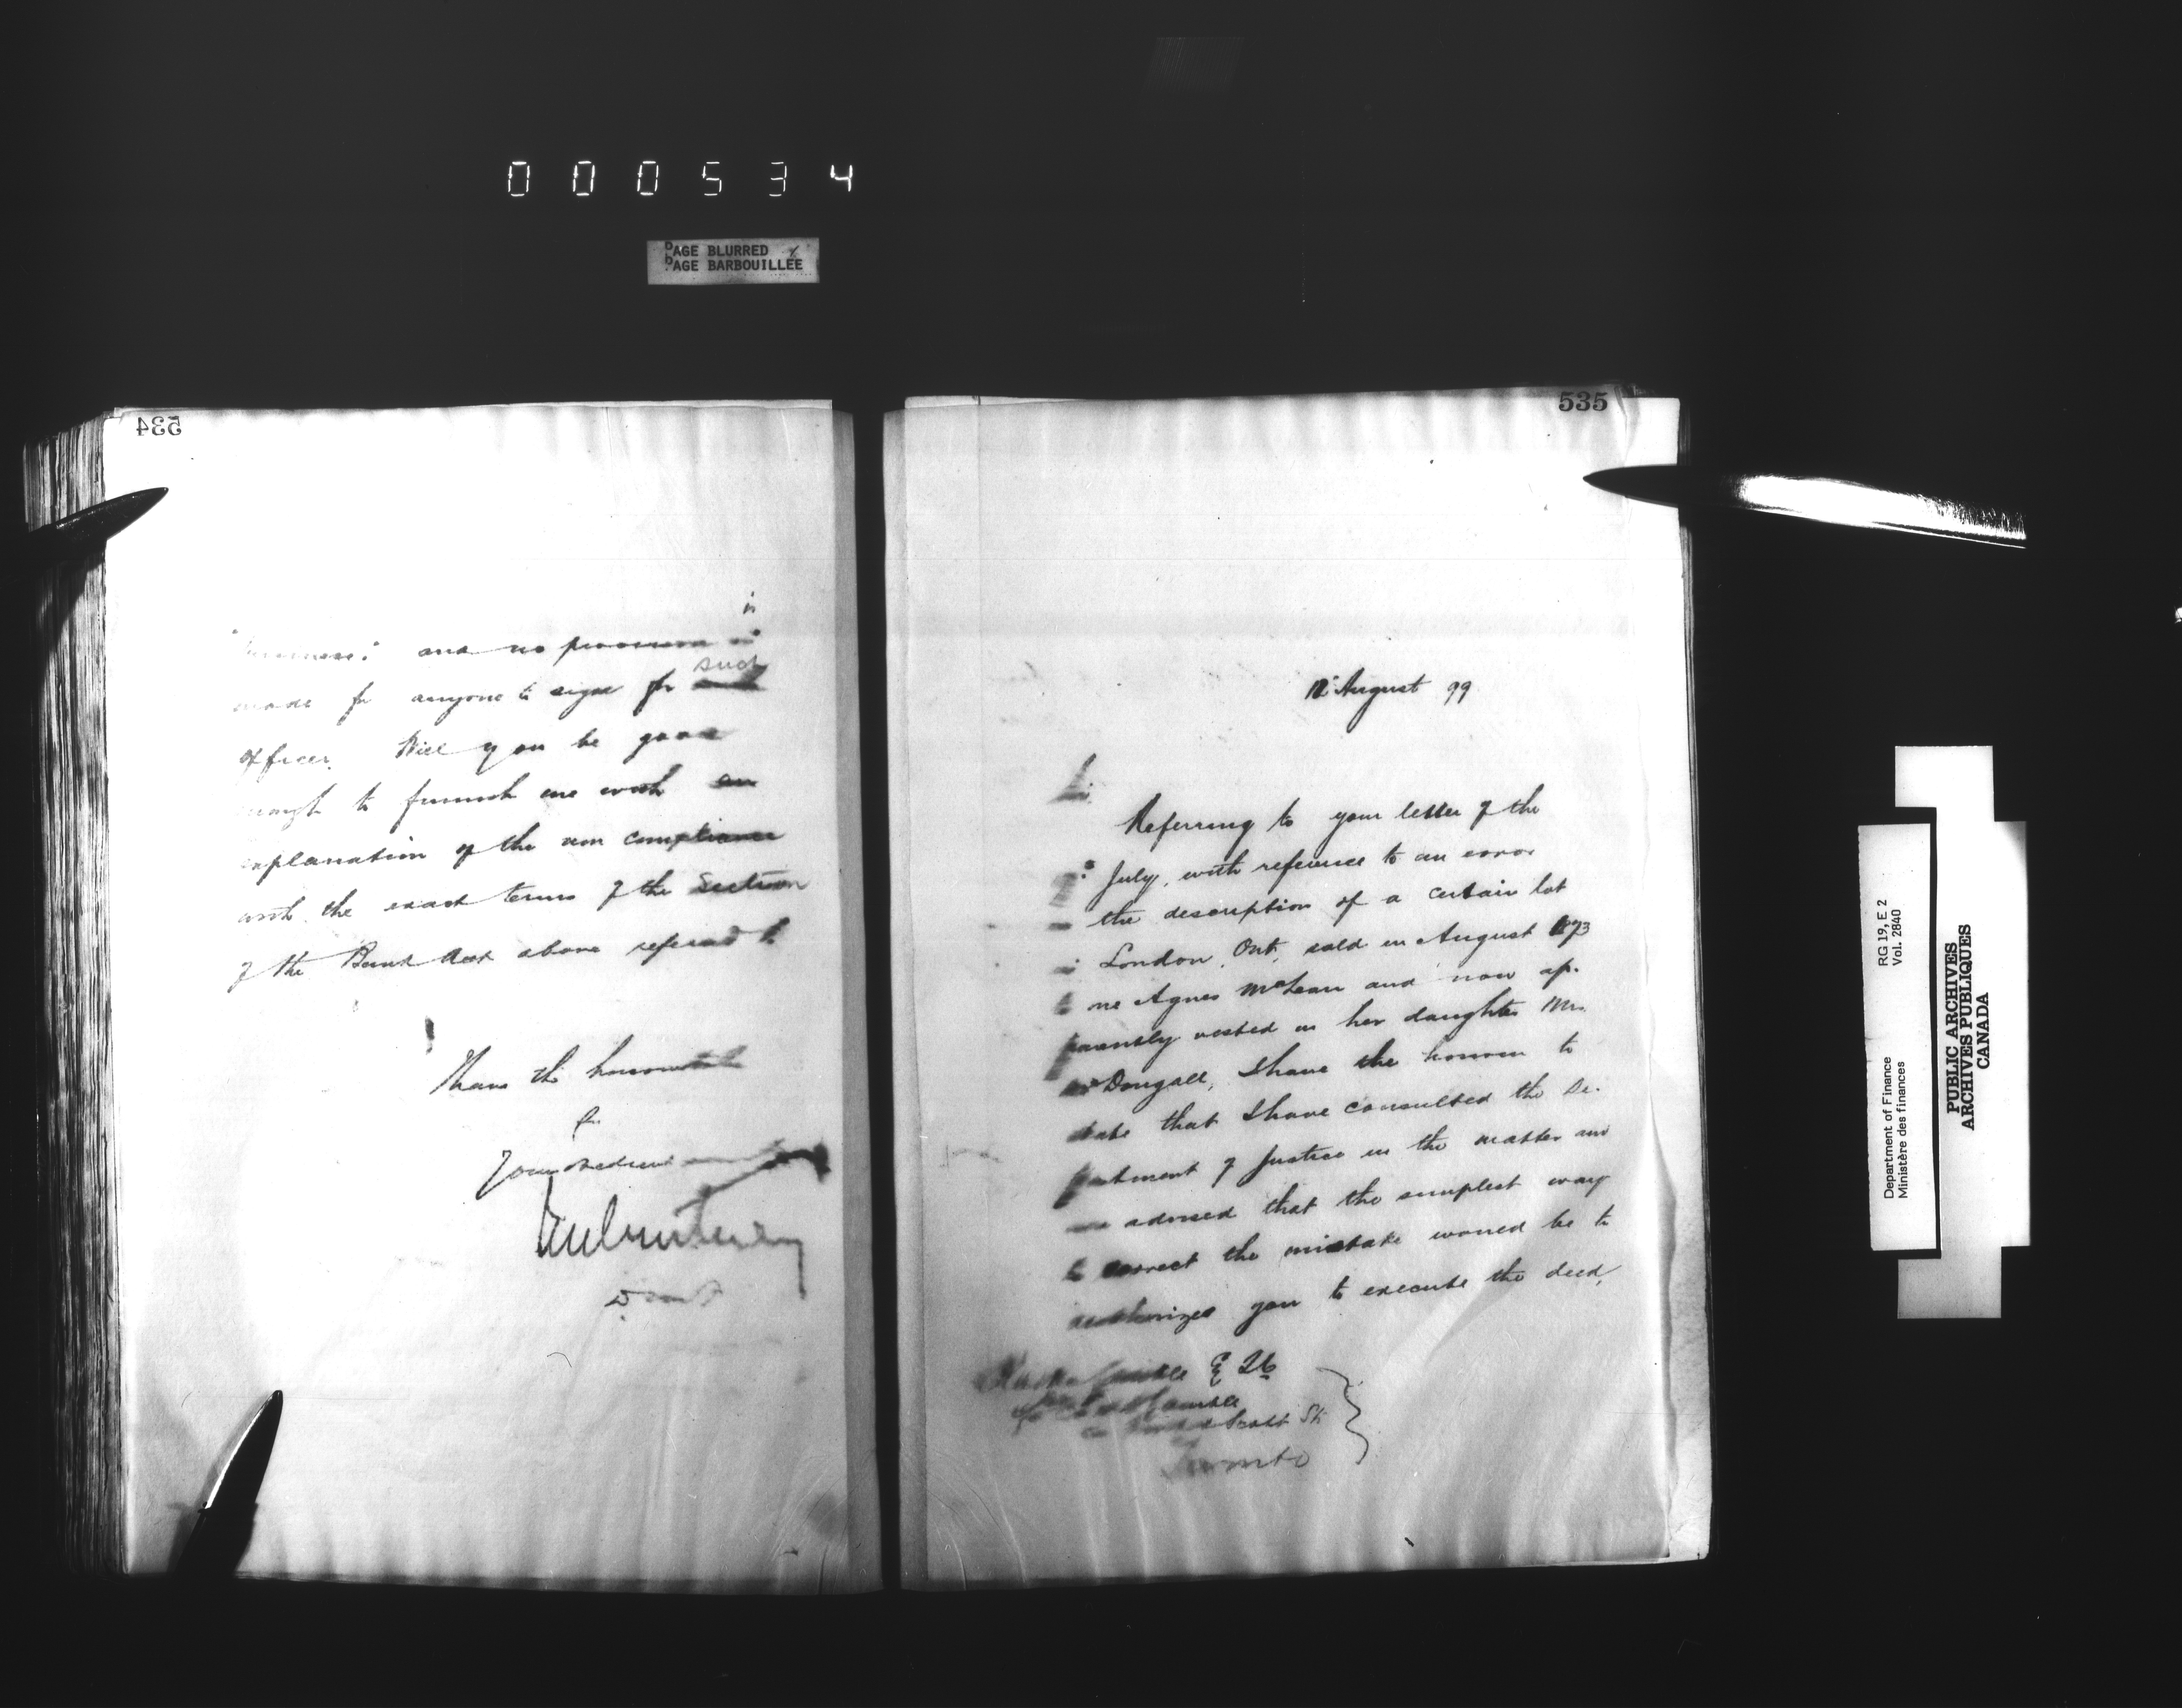 000534
PAGE BLURRED
PAGE BARBOUILLÉE
534
is
and no provision is
made for anyone to sign for such
officer. Will you be good
enough to furnish me with an
explanation of the non compliance
with the exact terms of the Section
of the Bank Act above referred to.
I have the honour to
be
Your obedient
535
12 August 99
Sir
Referring to your letter of the
July, with reference to an error
the description of a certain lot
in London, Ont, sold in August 1873
to one Agnes McLean and now ap-
parently vested in her daughter Mrs
McDougall, I have the honour to
state that I have consulted the De-
partment of Justice in the matter and
am advised that the simplest way
to correct the mistake would be to
authorize you to execute the deed,
& Scott St
Toronto
RG 19, E 2
Vol. 2840
Department of Finance
Ministère des finances
PUBLIC ARCHIVES
ARCHIVES PUBLIQUES
CANADA